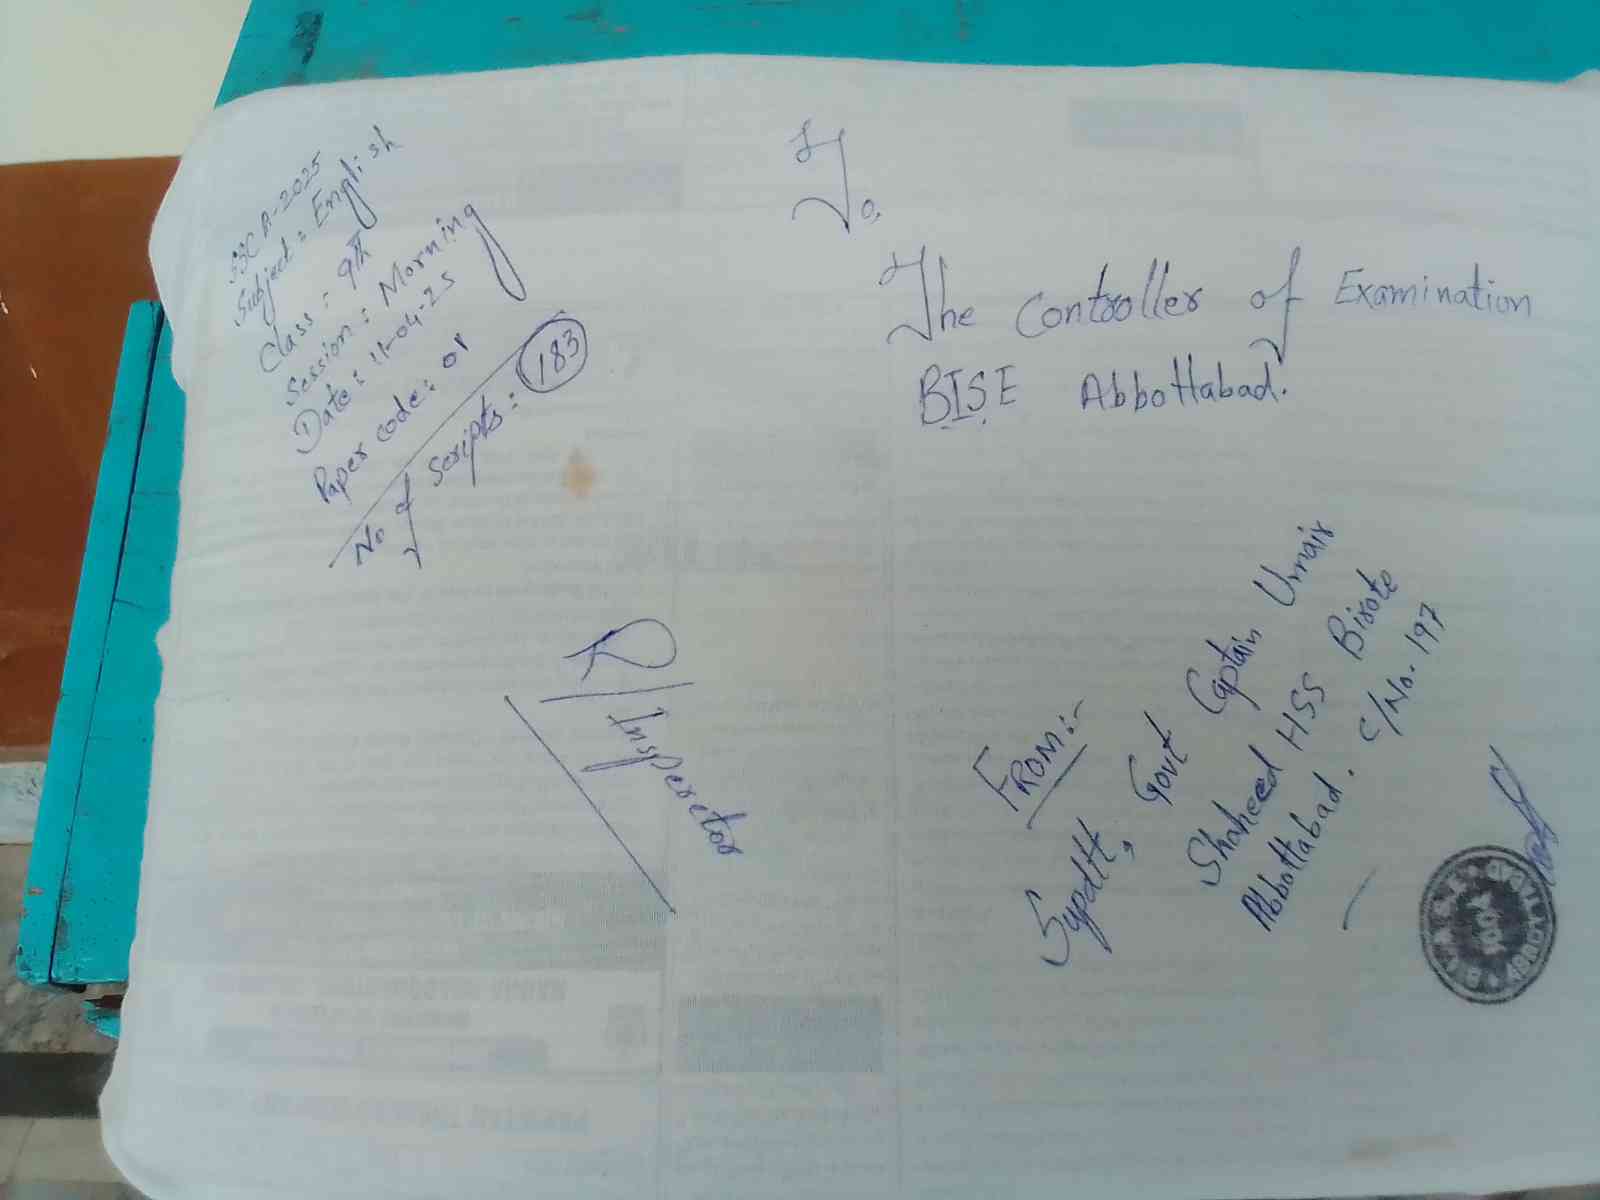 SSC A-2025
Subject: English
Class: 9th
Session: Morning
Date: 11-04-25
Paper code: 01
No of scripts: 183
To,
The Controller of Examination
BISE Abbottabad.
R/Insperctor
FROM:-
Supdtt, Govt Captain Umair
Shaheed HSS Birote
Abbottabad. C/No. 197